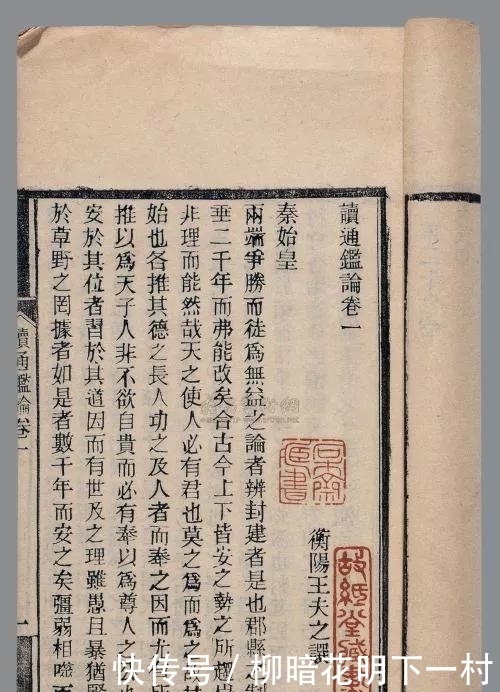 讀通鑑論卷一
衡陽王夫之譔
秦始皇
兩端爭勝而徒爲無益之論者辨封建者是也郡縣之制
垂二千年而弗能改矣合古今上下皆安之勢之所趨
非理而能然哉天之使人必有君也莫之爲而爲之
始也各推其德之長人功之及人者而奉之因而尤有所
推以爲天子人非不欲自貴而必有奉以爲尊人之
安於其位者習於其道因而有世及之理雖愚且暴猶賢
於草野之罔據者如是者數千年而安之矣彊弱相噬而
讀通鑑論卷一
故紙堂藏
快传号 / 柳暗花明下一村